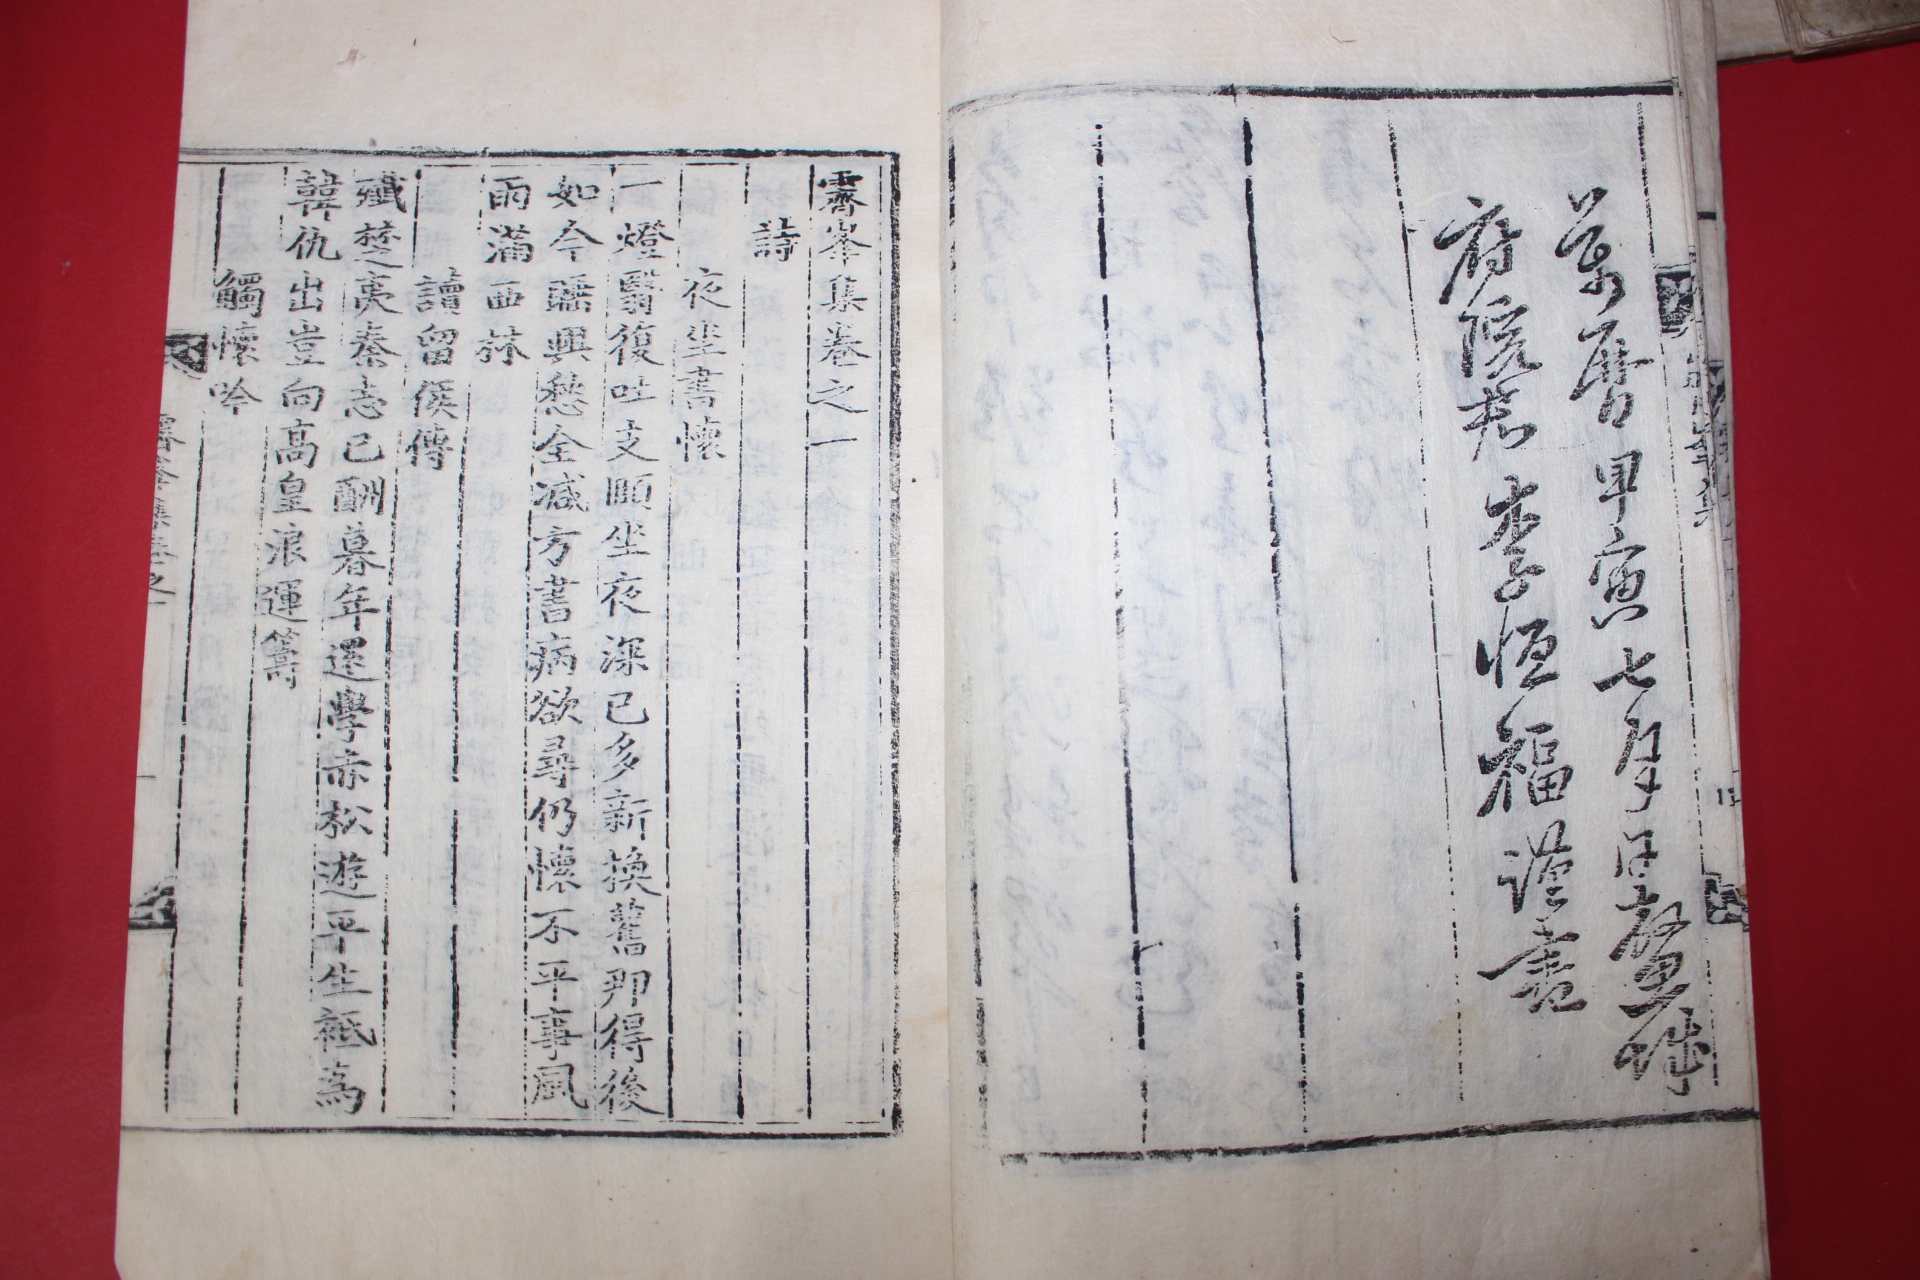 萬曆甲寅七月日鰲城
府院君李恒福謹書
霽峯集卷之一
詩
夜坐書懷
一燈翳復吐支頤坐夜深已多新換舊那得後
如今睡興愁全減方書病欲尋仍懷不平事風
雨滿西林
讀留侯傳
殲楚夷秦志已酬暮年還學赤松遊平生秪爲
韓仇出豈向高皇浪運籌
觸懷吟
霽峯集卷之一